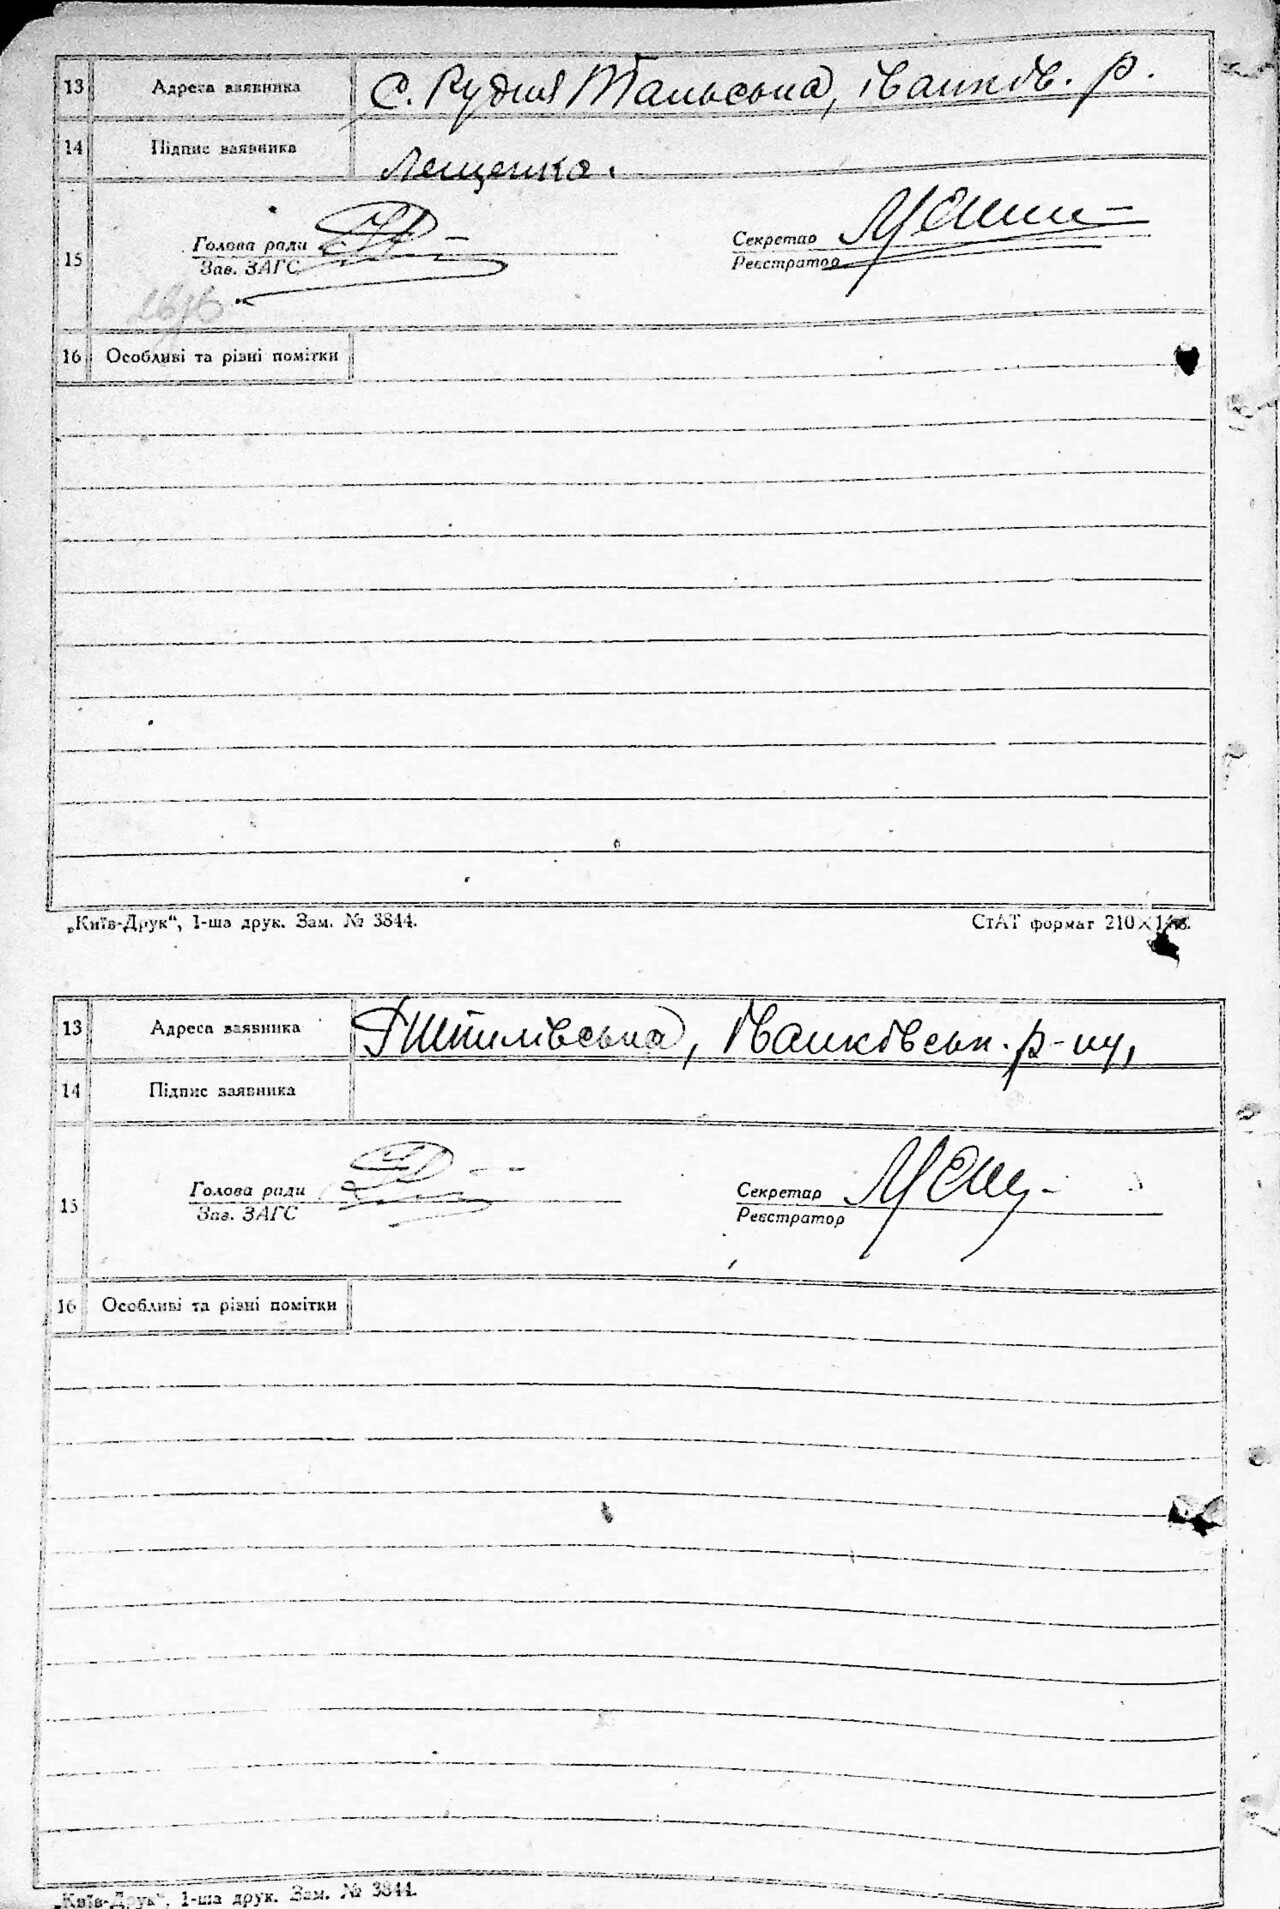 13 Адреса заявника С. Рудня Тальська, іванків. р.
14 Підпис заявника Лещенко.
15
Голова ради Секретар
Зав. ЗАГС Реєстратор
16 Особливі та різні помітки
„Київ-Друк“, 1-ша друк. Зам. № 3844. СтАТ формат 210×148.
13 Адреса заявника Іванківськ. р-ну,
14 Підпис заявника
15
Голова ради Секретар
Зав. ЗАГС Реєстратор
16 Особливі та різні помітки
„Київ-Друк“, 1-ша друк. Зам. № 3844.